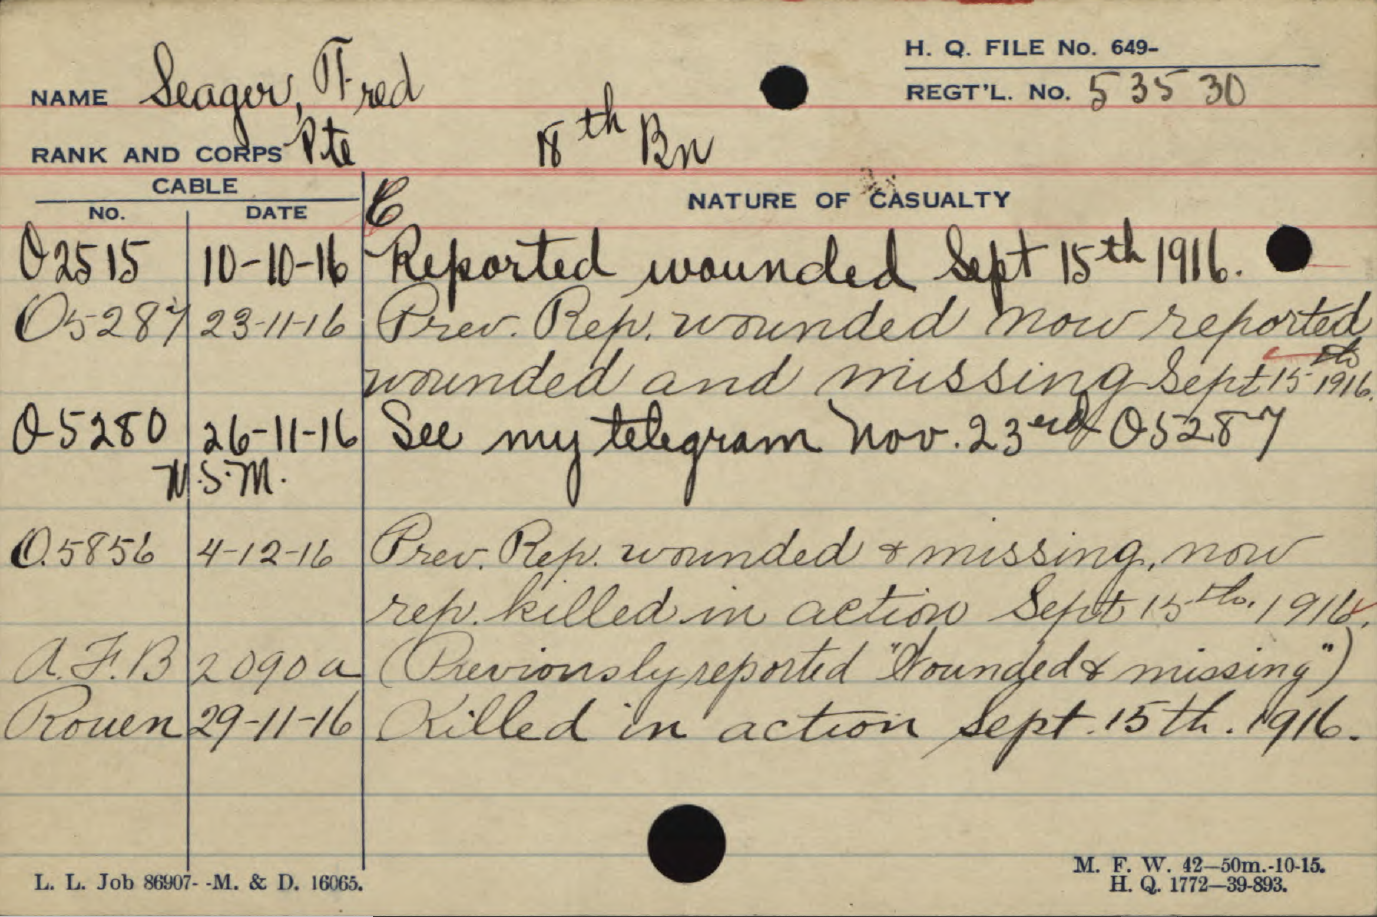 H. Q. FILE No. 649-
NAME Seager, Fred
REGT'L. No. 53530
RANK AND CORPS Pte 18th Bn
CABLE
NO. DATE
C NATURE OF CASUALTY
O2515 10-10-16 Reported wounded Sept 15th 1916.
O5287 23-11-16 Prev. Rep. wounded now reported
wounded and missing Sept 15th 1916.
O5280 26-11-16 See my telegram Nov. 23rd O5287
M.S.M.
O.5856 4-12-16 Prev. Rep. wounded & missing, now
rep. killed in action Sept 15th. 1916.
A.F.B 2090a (Previously reported "Wounded & missing")
Rouen 29-11-16 Killed in action Sept. 15th. 1916.
L. L. Job 86907- -M. & D. 16065.
M. F. W. 42—50m.-10-15.
H. Q. 1772—39-893.